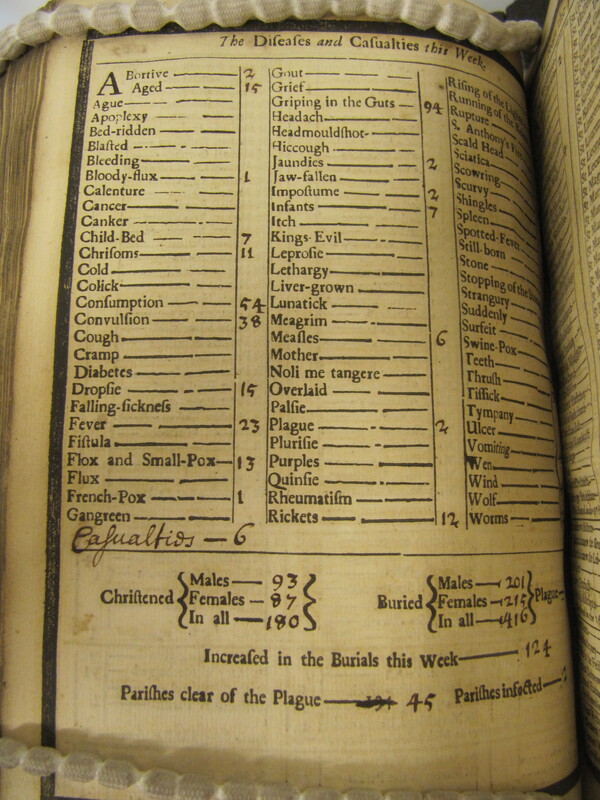 The Diſeaſes and Caſualties this Week.
ABortive 2
Aged 15
Ague
Apoplexy
Bed-ridden
Blaſted
Bleeding
Bloody-flux 1
Calenture
Cancer
Canker
Child-Bed 7
Chriſoms 11
Cold
Colick
Conſumption 54
Convulſion 38
Cough
Cramp
Diabetes
Dropſie 15
Falling-ſickneſs
Fever 23
Fiſtula
Flox and Small-Pox 13
Flux
French-Pox 1
Gangreen
Caſualties — 6
Gout
Grief
Griping in the Guts 94
Headach
Headmouldſhot
Hiccough
Jaundies 2
Jaw-fallen
Impoſtume 2
Infants 7
Itch
Kings-Evil
Leproſie
Lethargy
Liver-grown
Lunatick
Meagrim
Meaſles 6
Mother
Noli me tangere
Overlaid
Palſie
Plague 2
Pluriſie
Purples
Quinſie
Rheumatiſm
Rickets 12
Riſing of the
Running of the
Rupture
S. Anthony's
Scald Head
Sciatica
Scowring
Scurvy
Shingles
Spleen
Spotted-Fever
Still-born
Stone
Stopping of the
Strangury
Suddenly
Surfeit
Swine-Pox
Teeth
Thruſh
Tiſſick
Tympany
Ulcer
Vomiting
Wen
Wind
Wolf
Worms
Chriſtened
Males — 93
Females — 87
In all — 180
Buried
Males — 201
Females — 215
In all — 416
Plague
Increaſed in the Burials this Week — 124
Pariſhes clear of the Plague — 45 Pariſhes infected —